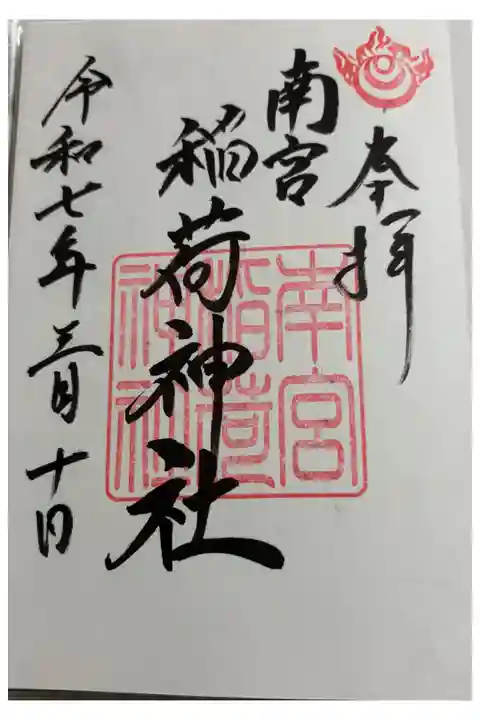 奉拝
南宮
稲荷神社
南宮
稲荷
神社
令和七年三月十日